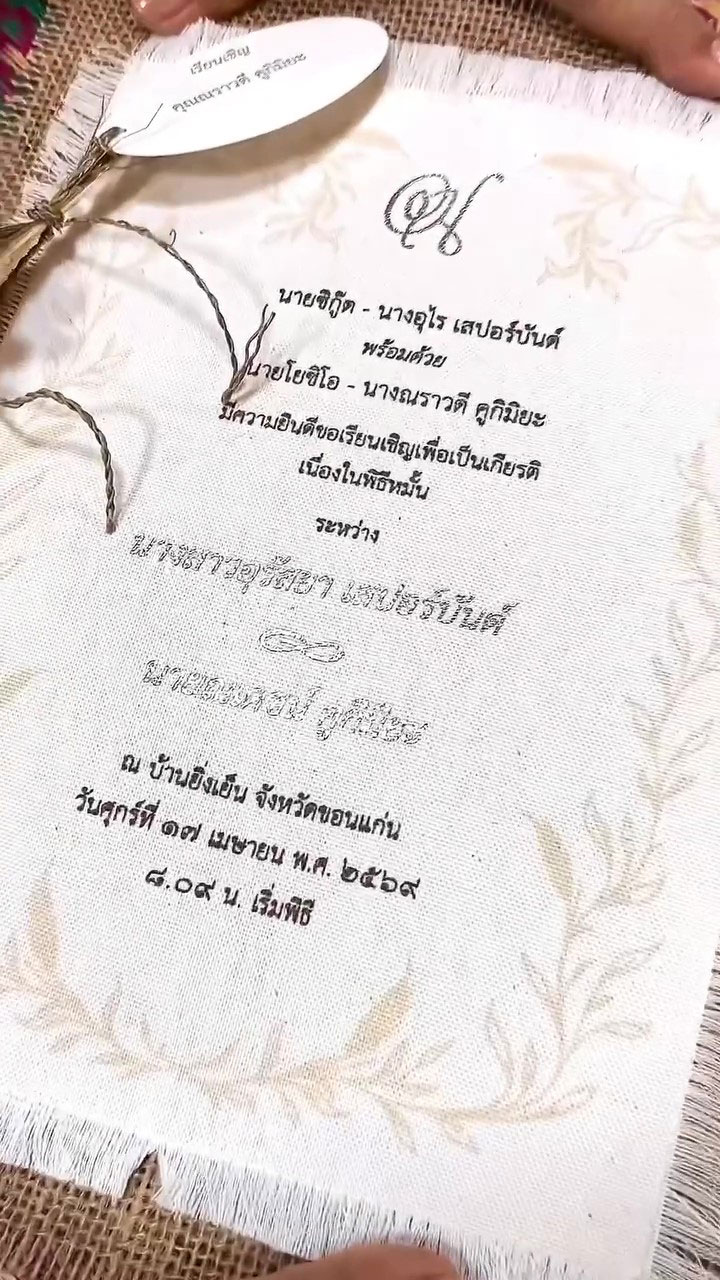 เรียนเชิญ
คุณณราวดี คูกิมิยะ
นายซิกู๊ด - นางอุไร เสปอร์บันด์
พร้อมด้วย
นายโยชิโอ - นางณราวดี คูกิมิยะ
มีความยินดีขอเรียนเชิญเพื่อเป็นเกียรติ
เนื่องในพิธีหมั้น
ระหว่าง
นางสาวอุรัสยา เสปอร์บันด์
นาย คูกิมิยะ
ณ บ้านยิ่งเย็น จังหวัดขอนแก่น
วันศุกร์ที่ ๑๗ เมษายน พ.ศ. ๒๕๖๙
๘.๐๙ น. เริ่มพิธี